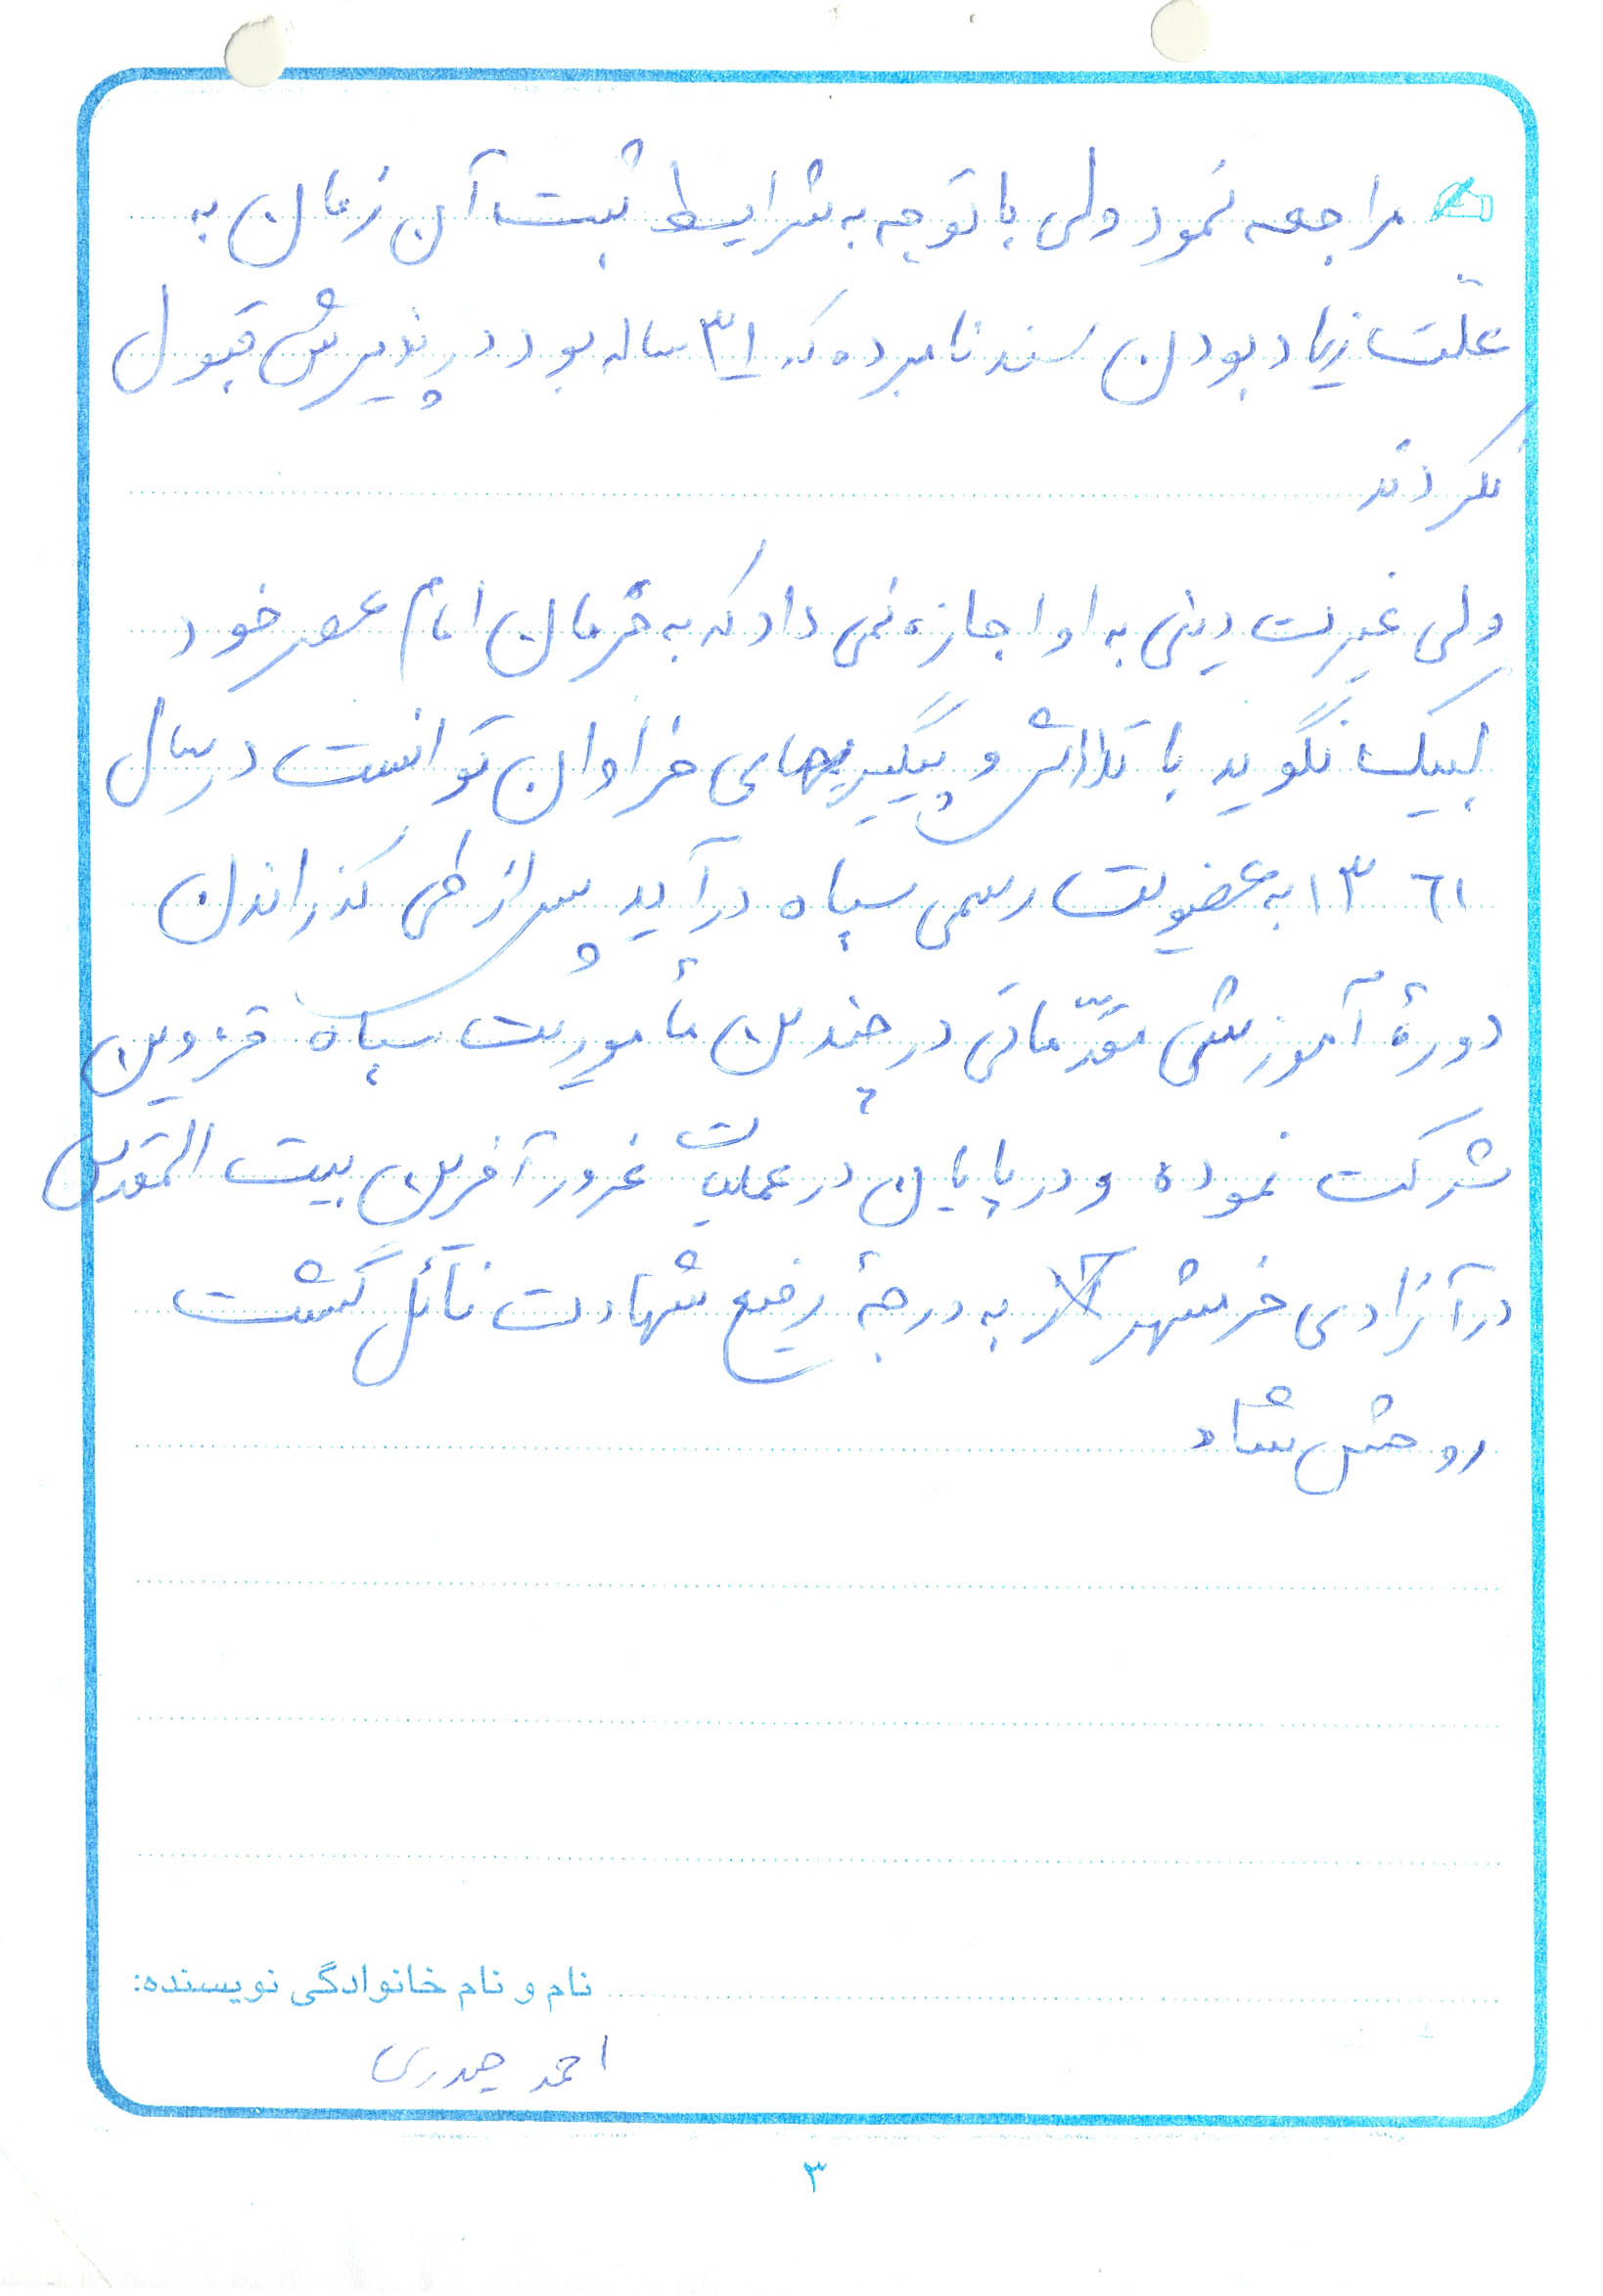 مراجعه نمود ولی با توجه به شرایط ثبت آن زمان به
علّت زیاد بودن سند نامبرده که ۳۱ ساله بود در پذیرش قبول
نکردند
ولی غیرت دینی به او اجازه نمی داد که به فرمان امام عصر خود
لبیک نگوید با تلاش و پیگیریهای فراوان توانست در سال
۱۳۶۱ به عضویت رسمی سپاه درآید پس از طی گذراندن
دورهٔ آموزشی مقدّماتی در چندین مأموریت سپاه قزوین
شرکت نموده و در پایان در عملیات غرور آفرین بیت المقدس
در آزادی خرمشهر به درجهٔ رفیع شهادت نائل گشت
روحش شاد
نام و نام خانوادگی نویسنده:
احمد حیدری
۳